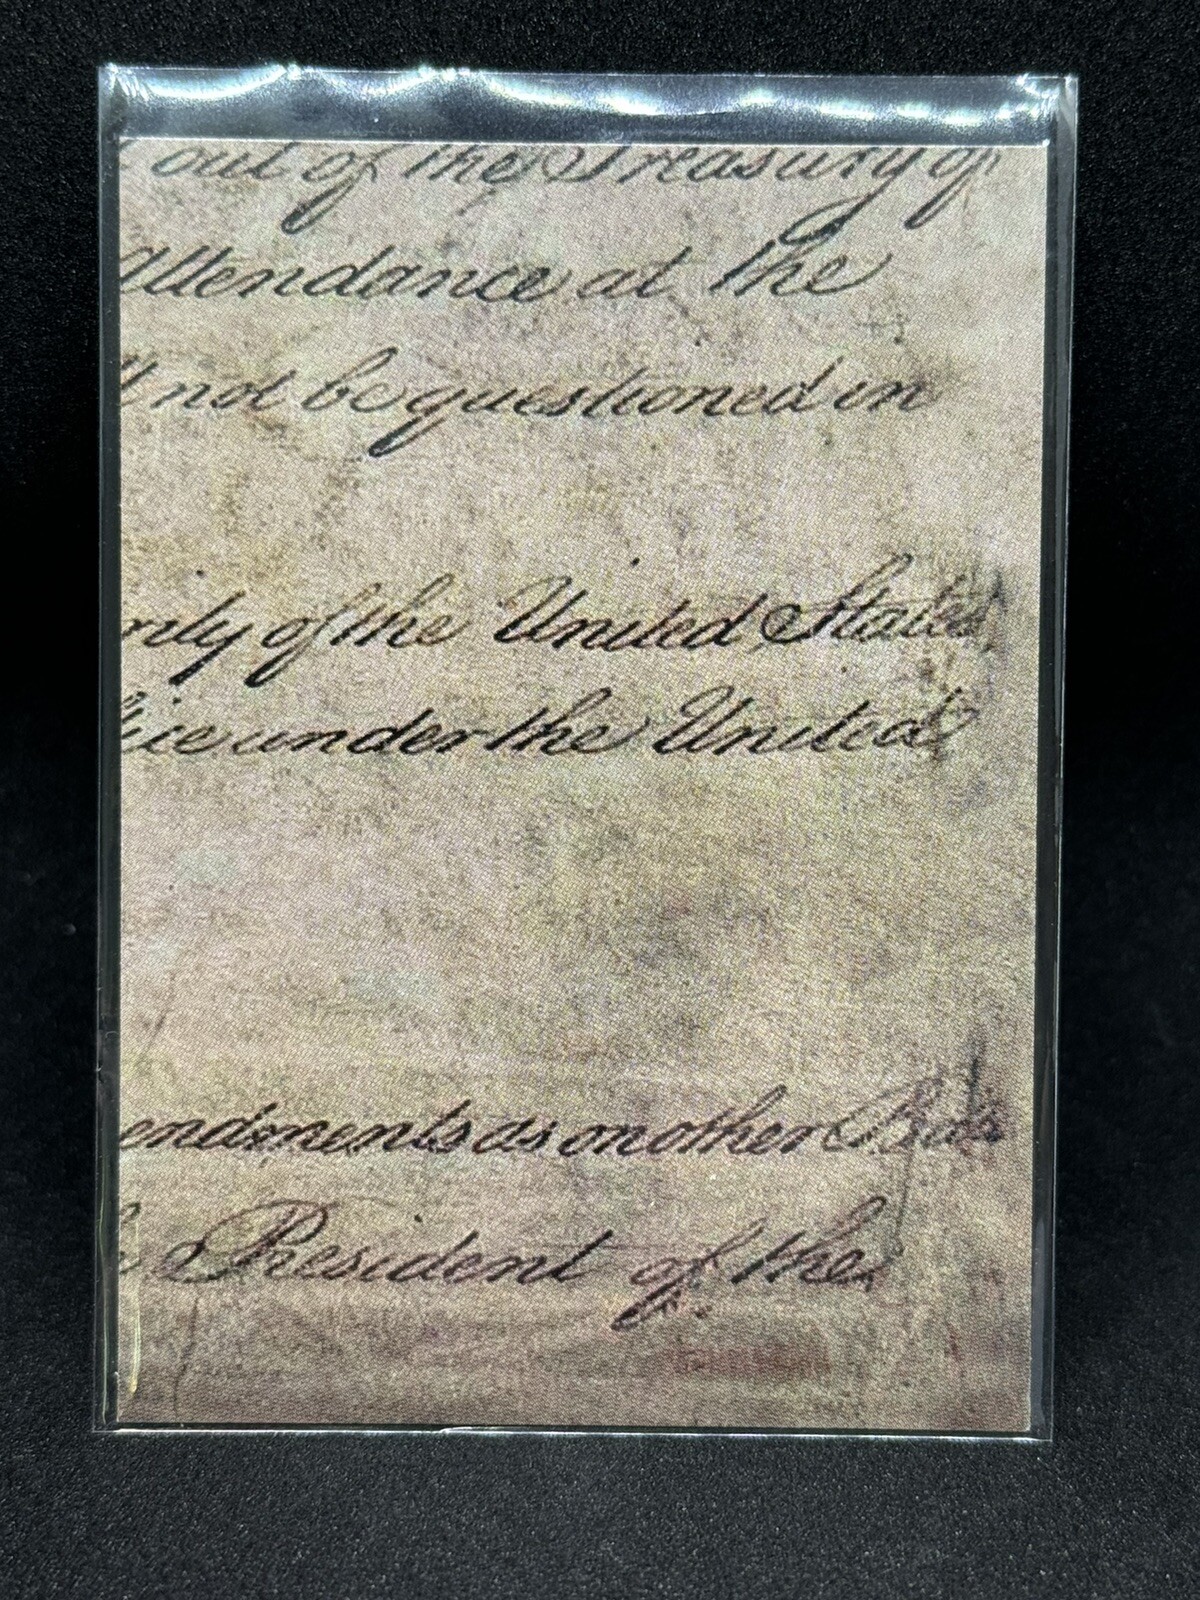 out of the Treasury of
Attendance at the
not be questioned in
rity of the United States
ice under the United
endments as on other Bills
President of the